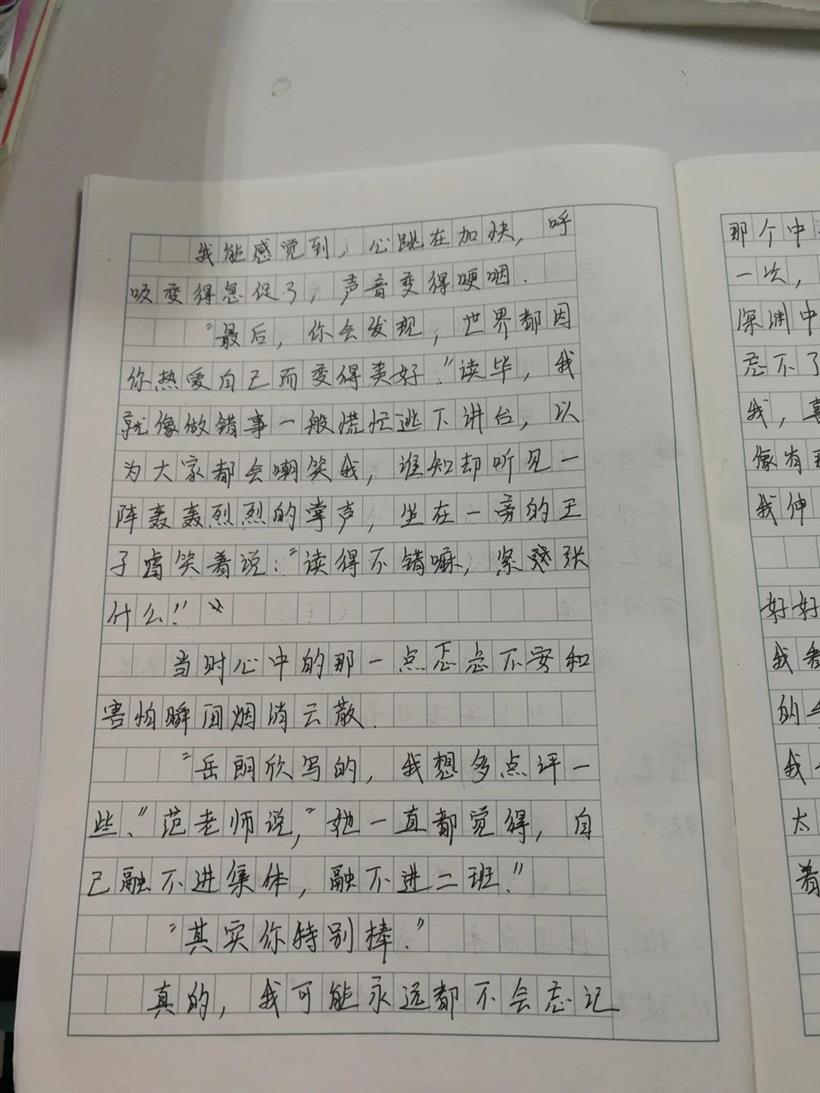 我能感觉到，心跳在加快，呼
吸变得急促了，声音变得哽咽．
“最后，你会发现，世界都因
你热爱自己而变得美好．”读毕，我
就像做错事一般慌忙逃下讲台，以
为大家都会嘲笑我，谁知却听见一
阵轰轰烈烈的掌声，坐在一旁的王
子睿笑着说：“读得不错嘛，紧张
什么！”
当时心中的那一点忐忑不安和
害怕瞬间烟消云散．
“岳朗欣写的，我想多点评一
些．”范老师说，“她一直都觉得，自
己融不进集体，融不进二班．”
“其实你特别棒．”
真的，我可能永远都不会忘记
那个中
一次，
深渊中
忘不了
我，
像有
我伸
好好
我看
的
我
太
着